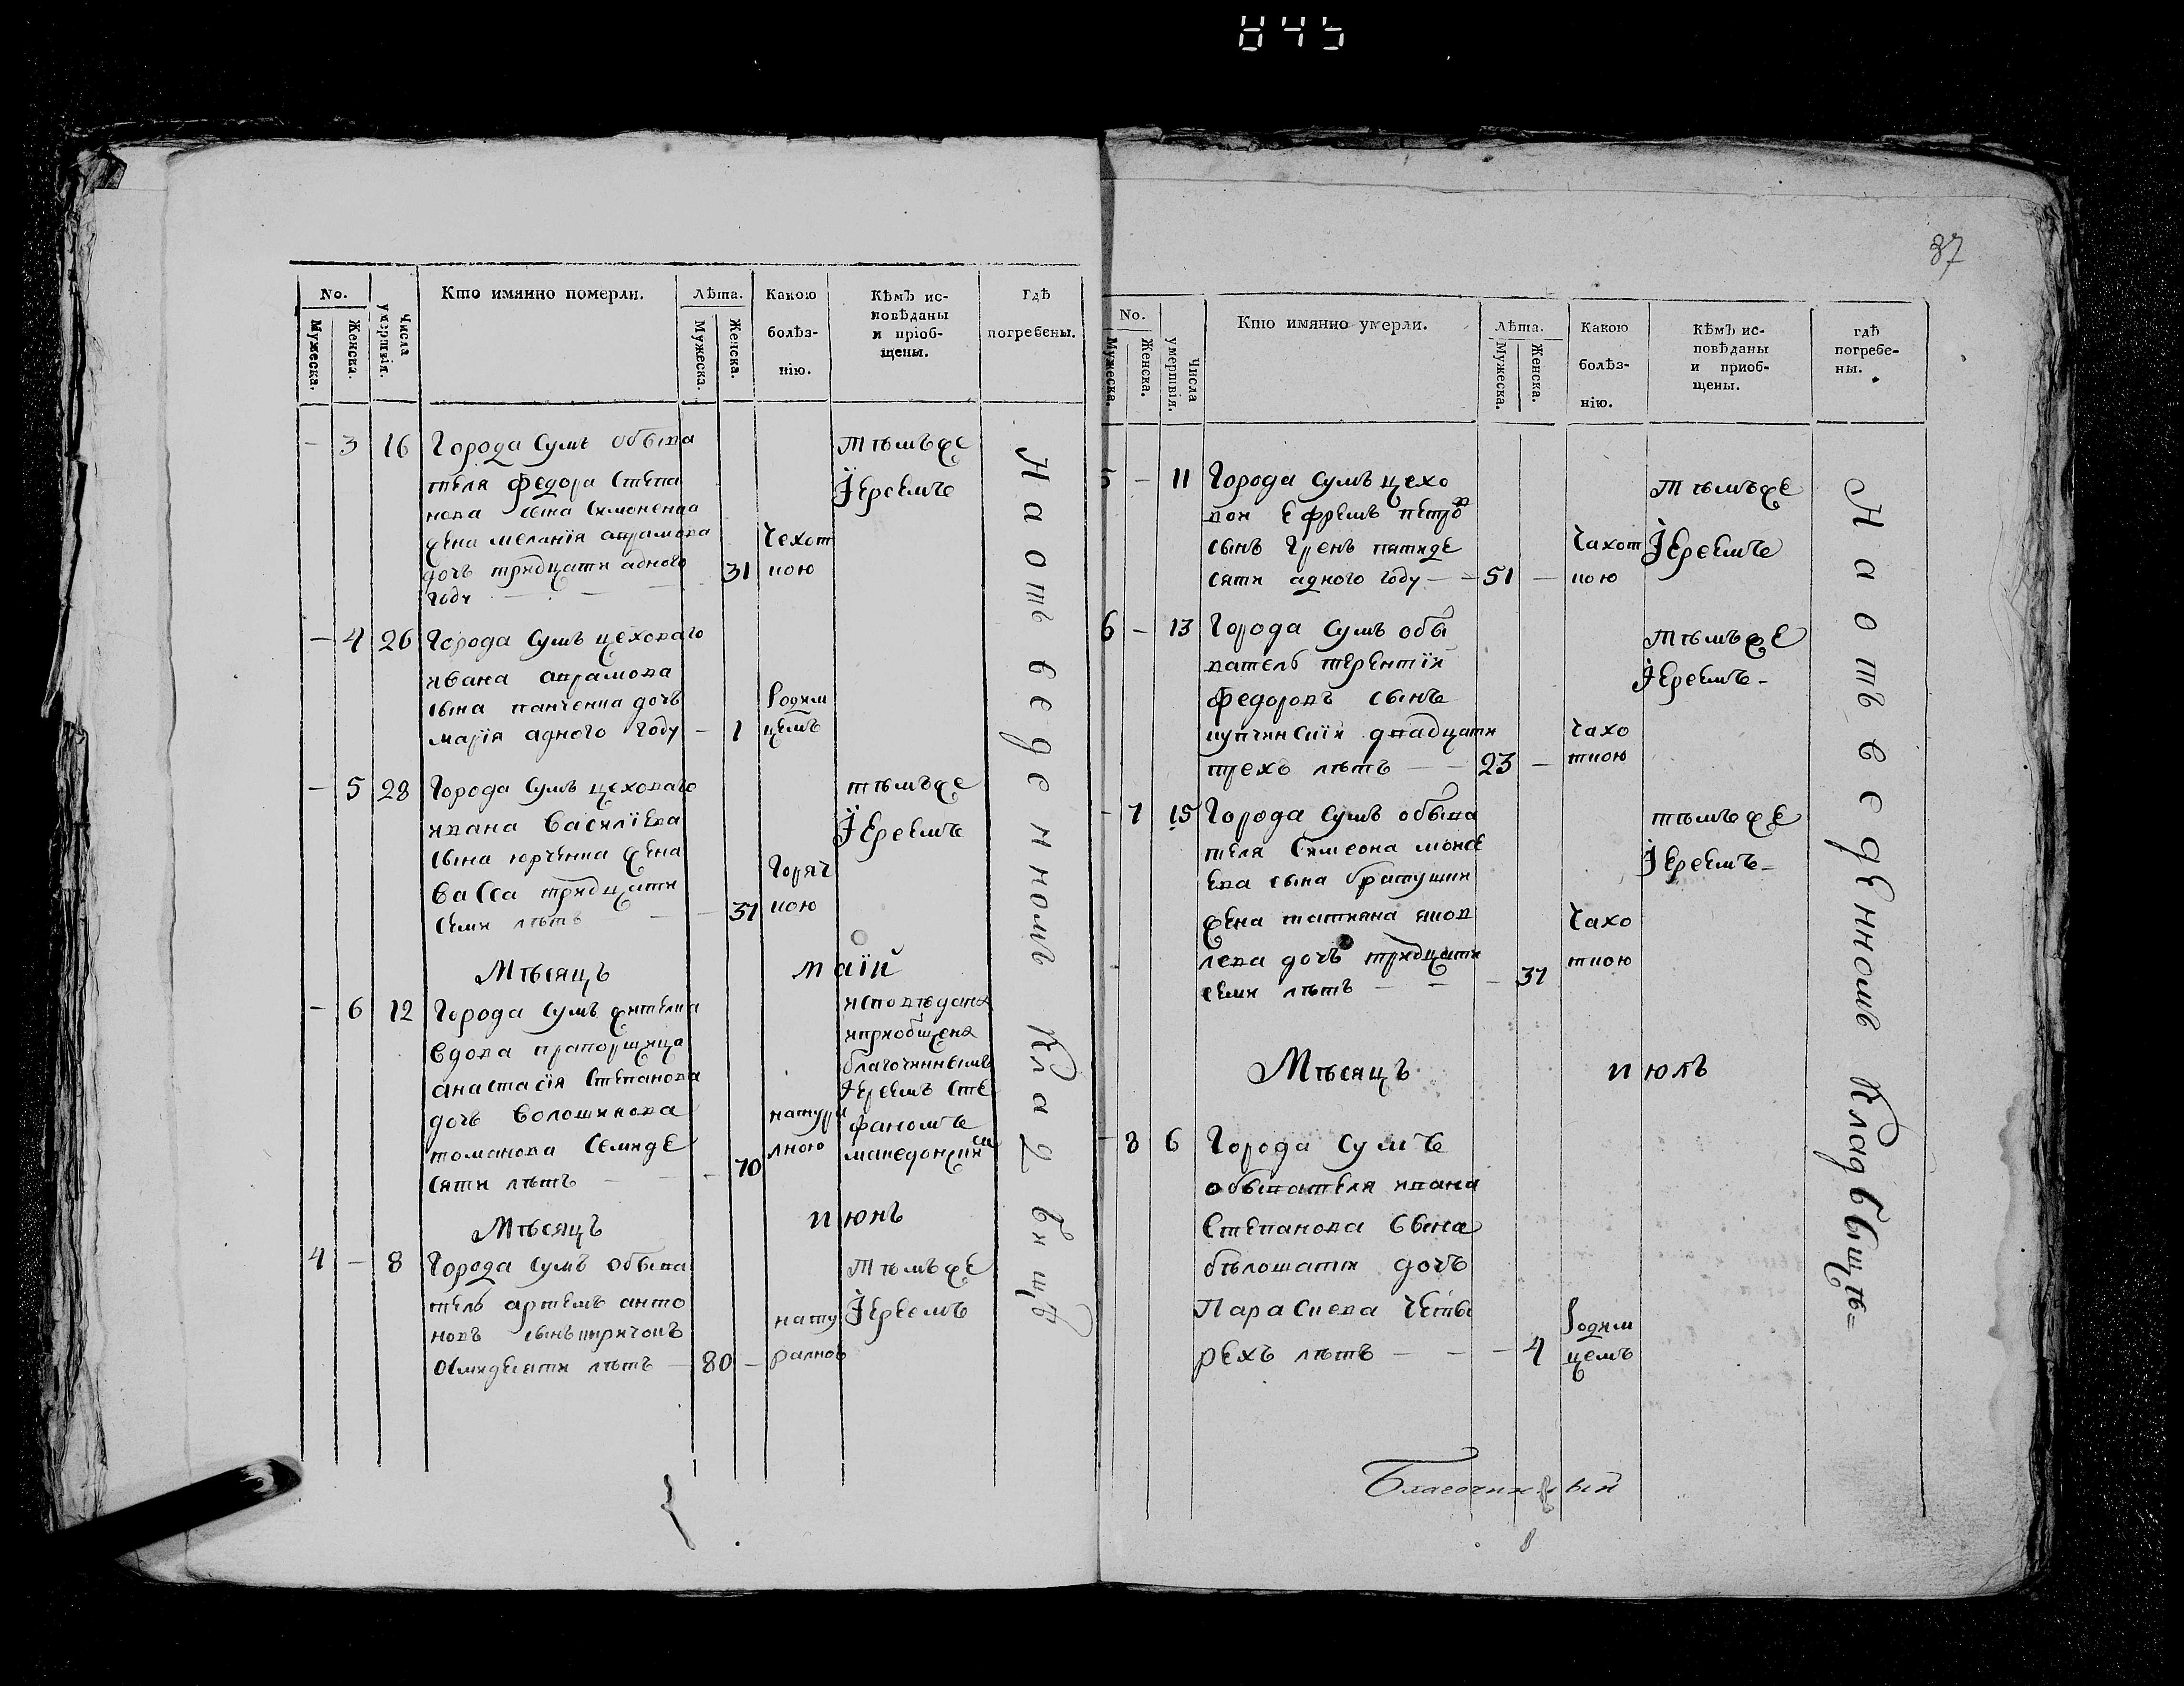 845
No.
Мужеска.
Женска.
Числа умертвія.
Кто имянно померли.
Лѣта.
Мужеска.
Женска.
Какою
болѣз-
нію.
Кѣмъ ис-
повѣданы
и пріоб-
щены.
Гдѣ
погребены.
- 3 16 Города Сумъ обыва
теля Федора Степа
нова сына Симоненка
жена меланія аврамова
дочь тридцати адного 31
году
Чехот
кою
тѣмъже
Іереемъ
- 4 26 Города Сумъ цеховаго
ивана аврамова
сына панченка дочь
марія адного году - 1
Родим
цемъ
- 5 28 Города Сумъ цеховаго
ивана Василіева
сына юрченка жена
Васса тридцати
семи лѣтъ - 37
Горяч
кою
тѣмъже
Іереемъ
Мѣсяцъ маій
- 6 12 Города Сумъ жителка
вдова прапорщица
анастасія Степанова
дочь Волошинова
томанова Семиде
сяти лѣтъ - 70
натура
лною
исповѣдана
иприобщена
благочиннымъ
Іереемъ Сте
фаномъ
македонскимъ
Мѣсяцъ июнь
4 - 8 Города Сумъ обыва
тель артемъ анто
новъ сынъ
осмидесяти лѣтъ - 80 -
нату
ралною
тѣмъже
Іереемъ
На отведенномъ Кладбищѣ
87
No.
Мужеска.
Женска.
Числа умертвія.
Кто имянно умерли.
Лѣта.
Мужеска.
Женска.
Какою
болѣз-
нію.
Кѣмъ ис-
повѣданы
и приоб-
щены.
гдѣ
погребе-
ны.
5 - 11 Города Сумъ цехо
вой Ефремъ петровъ
сынъ Гренъ пятиде
сяти адного году - 51 -
Чахот
кою
тѣмъже
Іереемъ
6 - 13 Города Сумъ обы
ватель терентій
Федоровъ сынъ
купчинскій двадцати
трехъ лѣтъ - 23 -
Чахо
ткою
тѣмъже
Іереемъ -
- 7 15 Города Сумъ обыва
теля Симеона мойсе
ева сына братушки
жена татияна яков
лева дочь тридцати
семи лѣтъ - 37
Чахо
ткою
тѣмъже
Іереемъ -
Мѣсяцъ июль
- 8 6 Города Сумъ
обывателя ивана
Степанова сына
бѣлошапки дочь
Параскева четы
рехъ лѣтъ - 4
Родим
цемъ
На отведенномъ Кладбыщѣ =
Благочинный